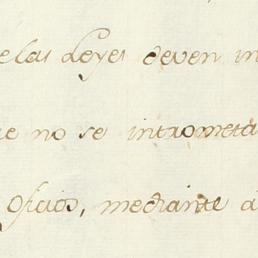 elas Leyes deven in
e no se intrometa
oficios, mediante a